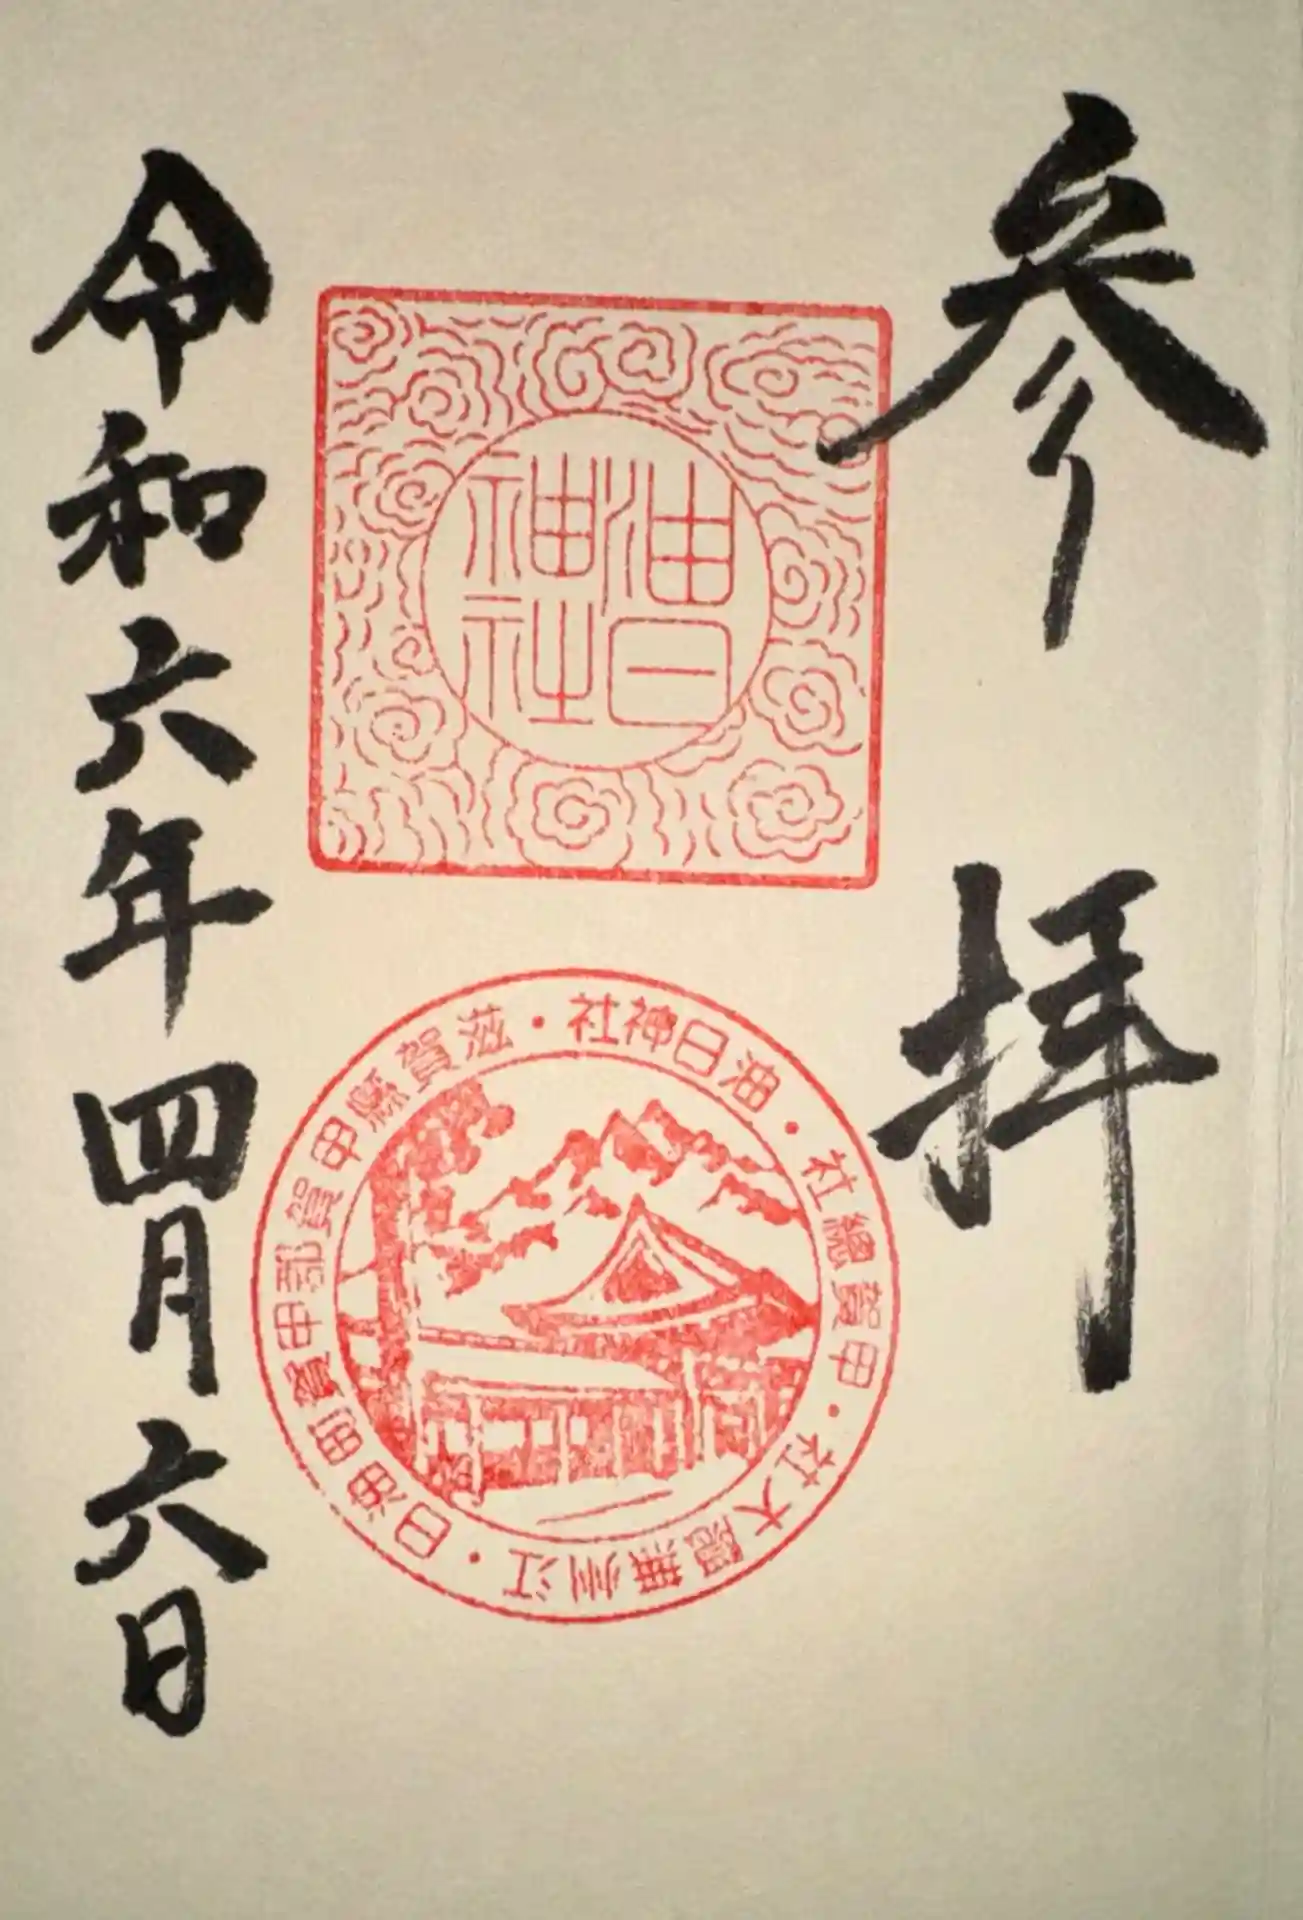 参拝
油日
神社
油日神社・滋賀縣甲賀郡甲賀町油日・江州無隠大社・甲賀總社
令和六年四月六日